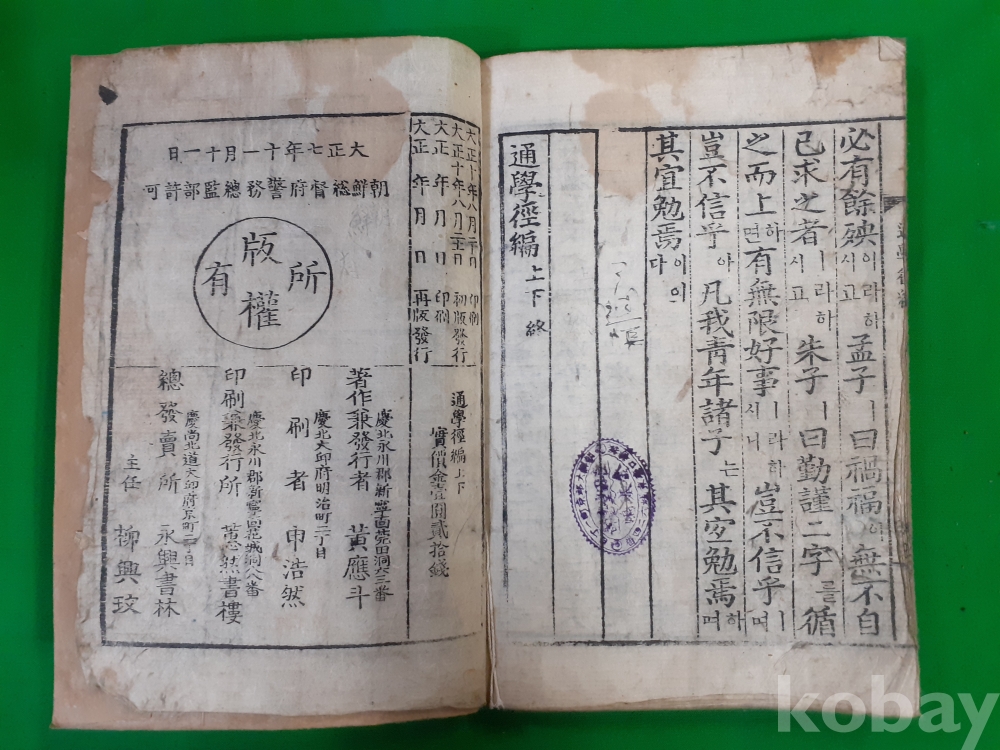 必有餘殃이라하시고 孟子ㅣ曰禍福이 無不自
己求之者ㅣ라하시고 朱子ㅣ曰勤謹二字를循
之而上하면有無限好事ㅣ라하시니 豈不信乎ㅣ며
豈不信乎아 凡我靑年諸子는 其宜勉焉하며
其宜勉焉이다
通學徑編 上下 終
大正十年八月 日 印刷
大正十年八月二十日 初版發行
大正 年 月 日 印刷
大正 年 月 日 再版發行
大正七年十一月十一日
朝鮮總督府警務總監部許可
版權所有
通學徑編 上下
實價金壹圓貳拾錢
慶北永川郡新寧面莞田洞六三番
著作兼發行者 黃應斗
慶北大邱府明治町二丁目
印刷者 申浩然
慶北永川郡新寧面花城洞八八番
印刷兼發行所 蕙然書樓
慶尙北道大邱府京町一丁目
總發賣所 永興書林
主任 柳興玟
kobay